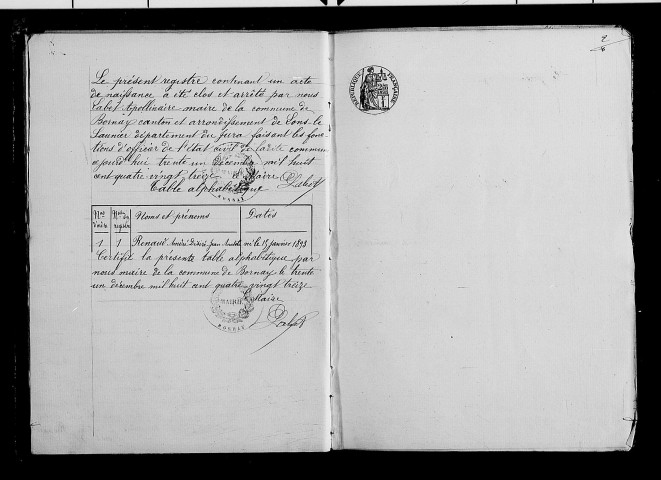 Le présent registre contenant un acte
de naissance a été clos et arrêté par nous
Labet Apollinaire maire de la commune de
Bornay canton et arrondissement de Lons-le
Saunier département du Jura faisant les fonc
tions d'officier de l'état civil de ladite commune
aujourd'hui trente un Décembre mil huit
cent quatre vingt treize Le Maire
Labet
Table alphabétique
MAIRIE
BORNAY
Nos d'ordre
Nos du registre
Noms et prénoms
Dates
1
1
Renaud André Désiré Jean né le 15 janvier 1893
Certifié la présente table alphabétique par
nous maire de la commune de Bornay le trente
un décembre mil huit cent quatre vingt treize
Le Maire
MAIRIE
BORNAY
Labet
2
RÉPUBLIQUE FRANÇAISE